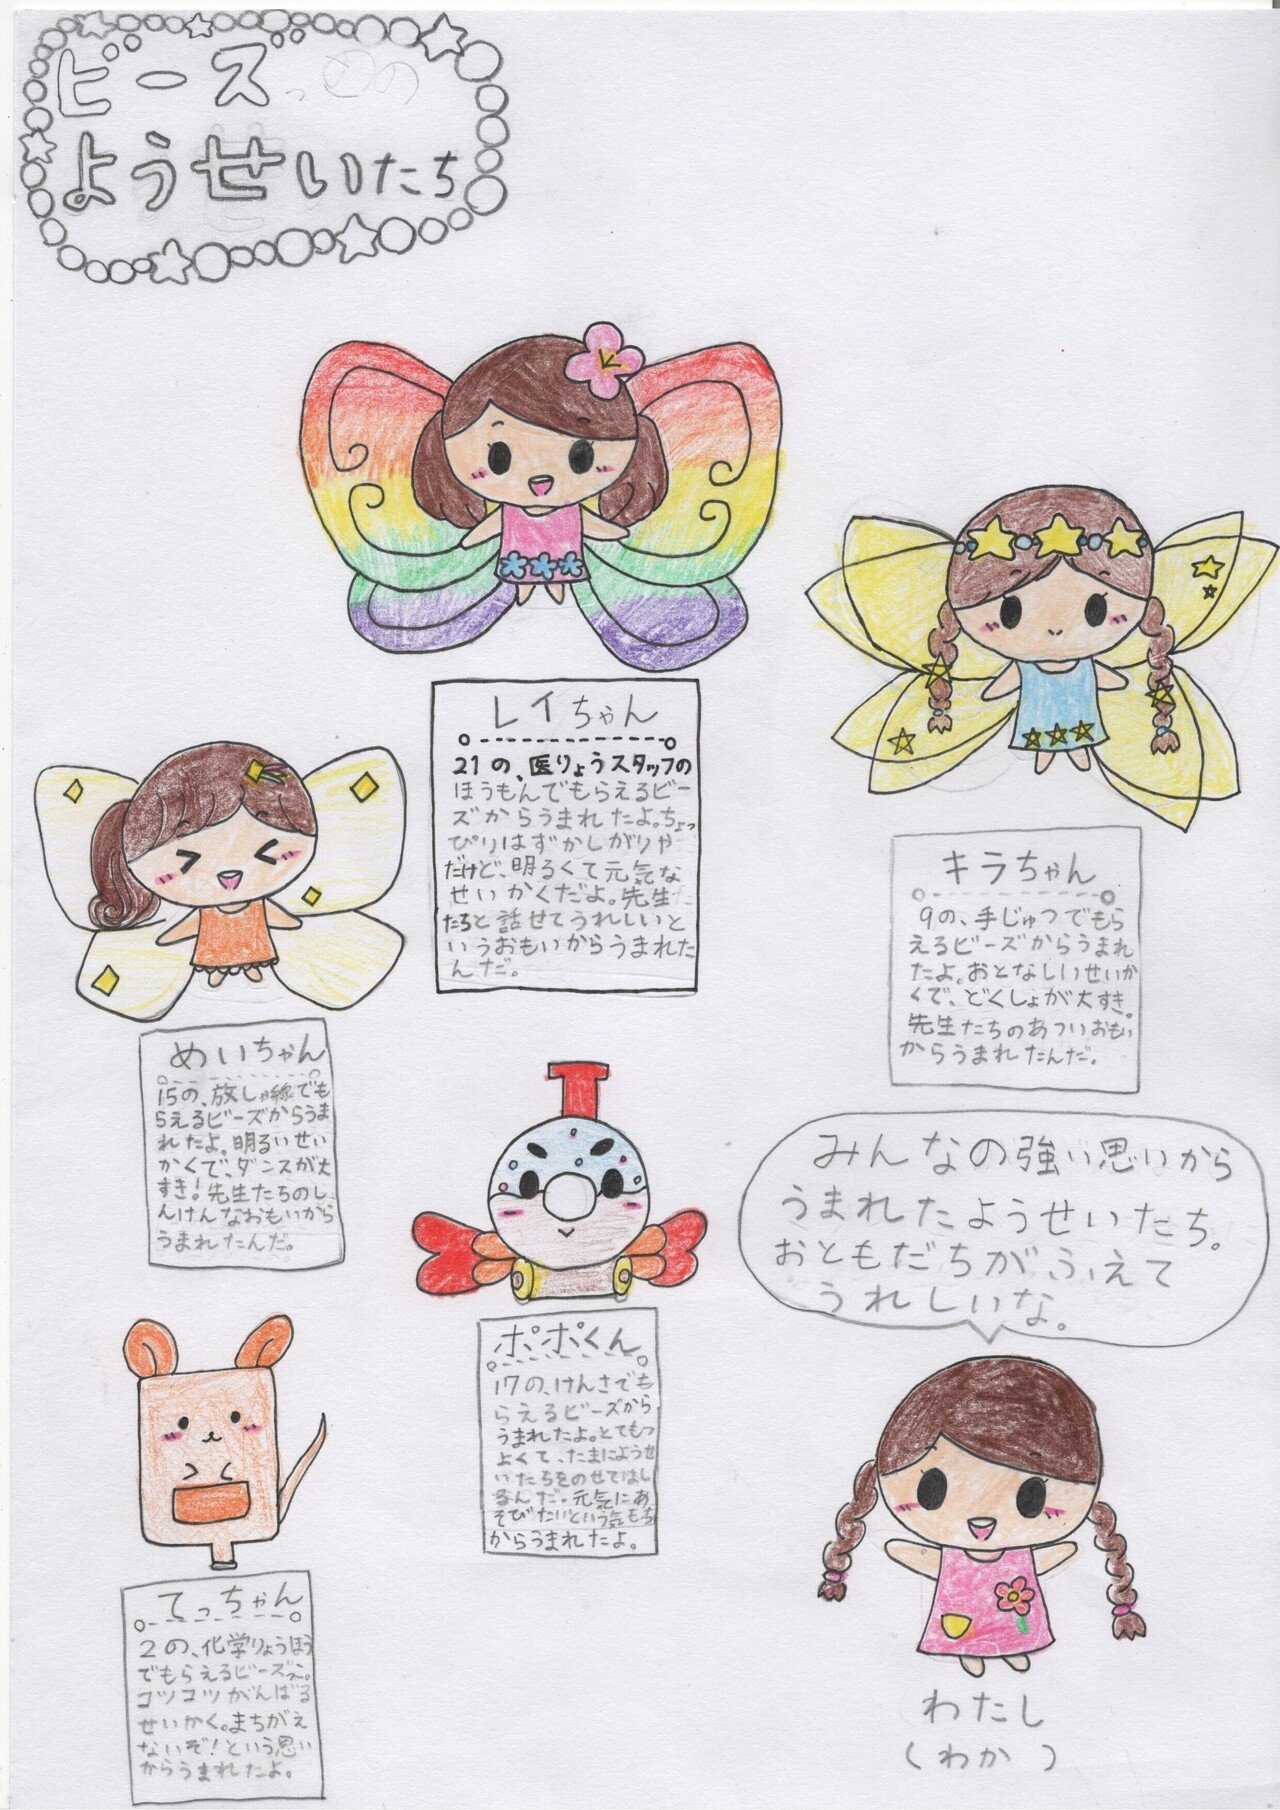 ビーズ
ようせいたち
レイちゃん
21の、医りょうスタッフの
ほうもんでもらえるビー
ズからうまれたよ。ちょっ
ぴりはずかしがりや
だけど、明るくて元気な
せいかくだよ。先生
たちと話せてうれしいと
いうおもいからうまれた
んだ。
キラちゃん
9の、手じゅつでもら
えるビーズからうまれ
たよ。おとなしいせいか
くで、どくしょが大すき。
先生たちのあついおもい
からうまれたんだ。
めいちゃん
15の、放しゃ線でも
らえるビーズからうま
れたよ。明るいせい
かくで、ダンスが大
すき!先生たちのし
んけんなおもいから
うまれたんだ。
ポポくん
17の、けんさでも
らえるビーズから
うまれたよ。とてもつ
よくて、たまにようせ
いたちをのせてはし
るんだ。元気にあ
そびたいという気もち
からうまれたよ。
みんなの強い思いから
うまれたようせいたち。
おともだちがふえて
うれしいな。
てっちゃん
2の、化学りょうほう
でもらえるビーズ
コツコツがんばる
せいかく。まちがえ
ないぞ!という思い
からうまれたよ。
わたし
(わか)